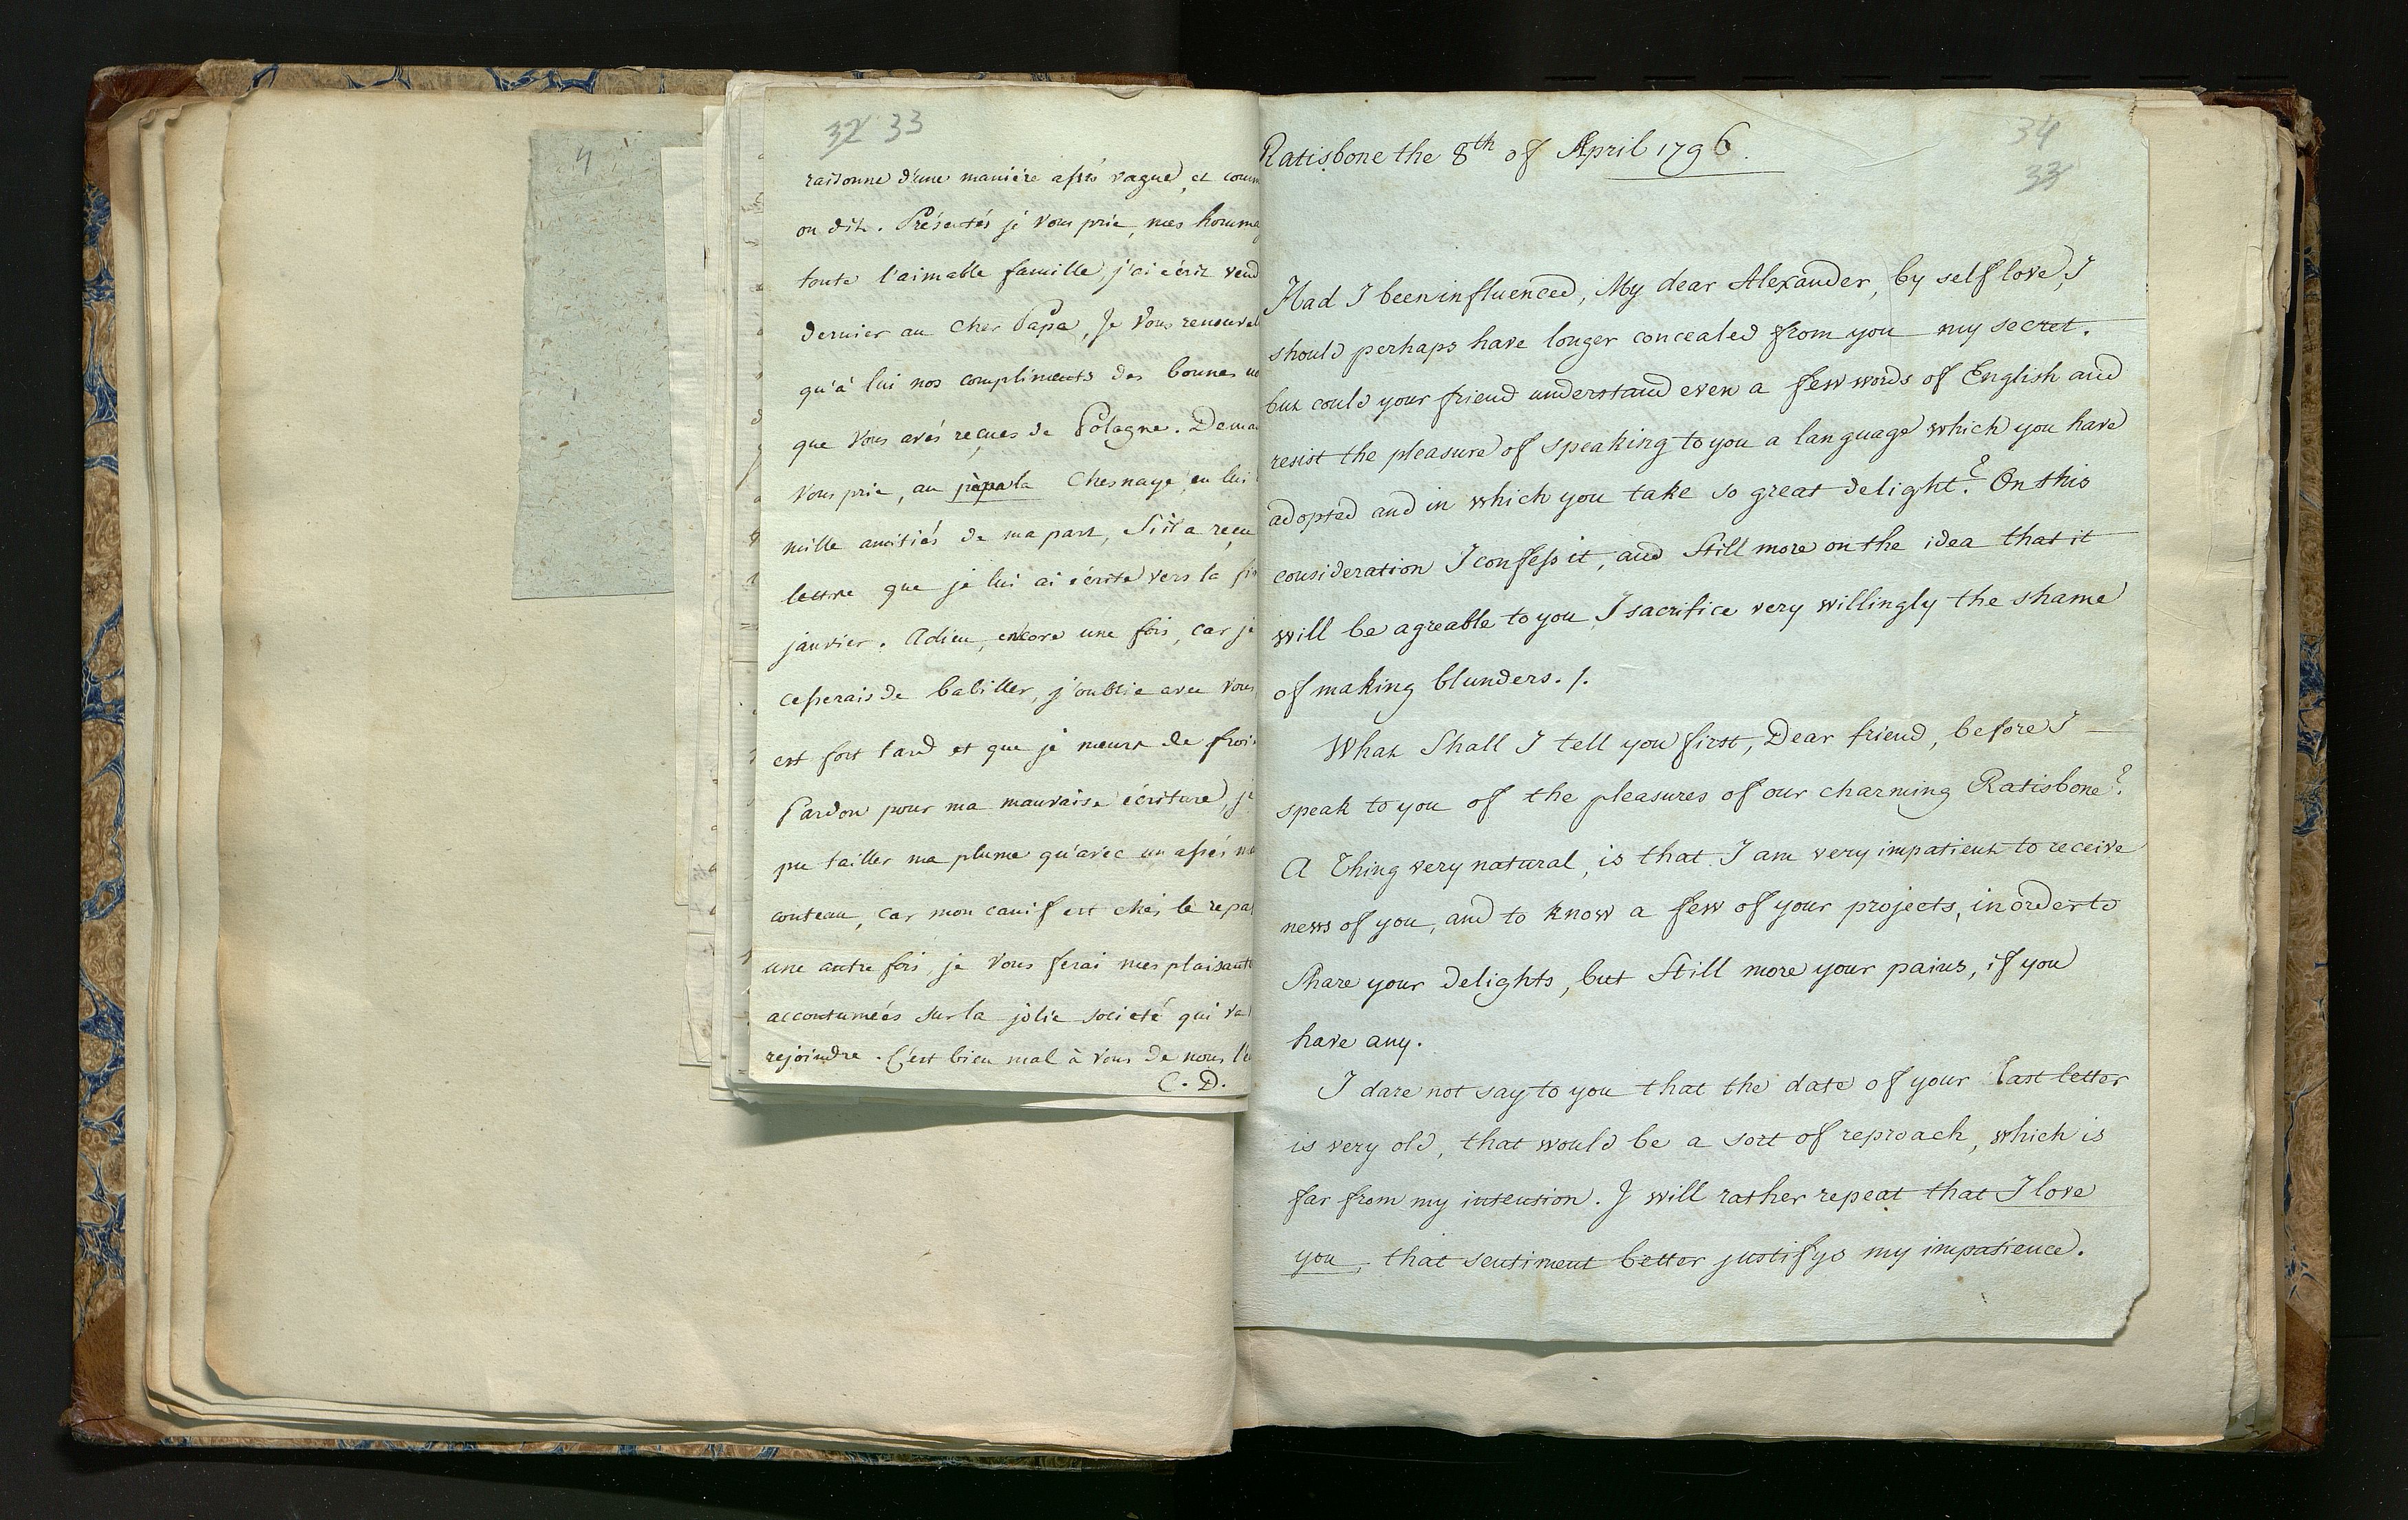 4
32 33
raisonne d'une manière assés vague, et comm
on dit. Présentés je Vous prie, mes homma
toute l'aimable famille, j'ai écrit vend
dernier au cher Papa, Je Vous renouvel
qu'à lui nos compliments des bonnes no
que Vous avés reçues de Pologne. Deman
Vous prie, au papa la Chesnaye, en lui
mille amitiés de ma part, S'il a reçu
lettre que je lui ai écrite vers la fin
janvier. Adieu, encore une fois, car je
cesserais de babiller, j'oublie avec Vous
est fort tard et que je meurs de froi
Pardon pour ma mauvaise écriture, je
pu tailler ma plume qu'avec un assés m
couteau, car mon canif est chés le repa
une autre fois, je Vous ferai mes plaisant
accoutumées sur la jolie société qui va
rejoindre. C'est bien mal à Vous de nous l'
C. D.
34
33
Ratisbone the 8th of April 1796.
Had I been influenced, My dear Alexander, by self love, I
should perhaps have longer concealed from you my secret.
but could your friend understand even a few words of English and
resist the pleasure of speaking to you a language which you have
adopted and in which you take so great delight? On this
consideration I confess it, and Still more on the idea that it
will be agreable to you, I sacrifice very willingly the shame
of making blunders. /.
What Shall I tell you first, Dear friend, before I
speak to you of the pleasures of our charming Ratisbone?
A Thing very natural, is that I am very impatient to receive
news of you, and to know a few of your projects, in order to
Share your delights, but Still more your pains, if you
have any.
I dare not say to you that the date of your last letter
is very old, that would be a sort of reproach, which is
far from my intension. I will rather repeat that I love
you, that sentiment better justifys my impatience.